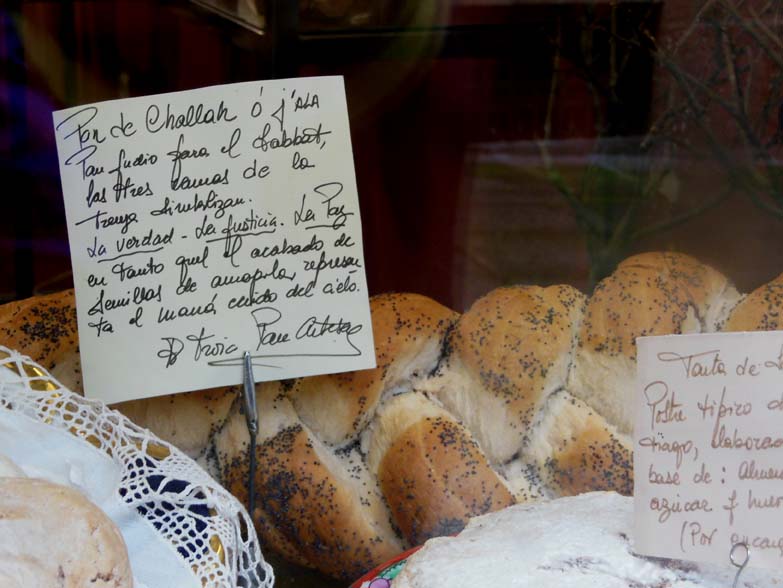 Pan de Challah ó j'ALA
Pan Judio para el Sabbat,
las tres ramas de la
Trenza Simbolizan.
La verdad - La Justicia. La Paz
en Tanto que el acabado de
Semillas de amapola, represen
ta el maná caído del cielo.
Pan Artesa
Tarta de
Postre típico d
tiago, elaborad
base de: Alme
azúcar y hue
(Por encar